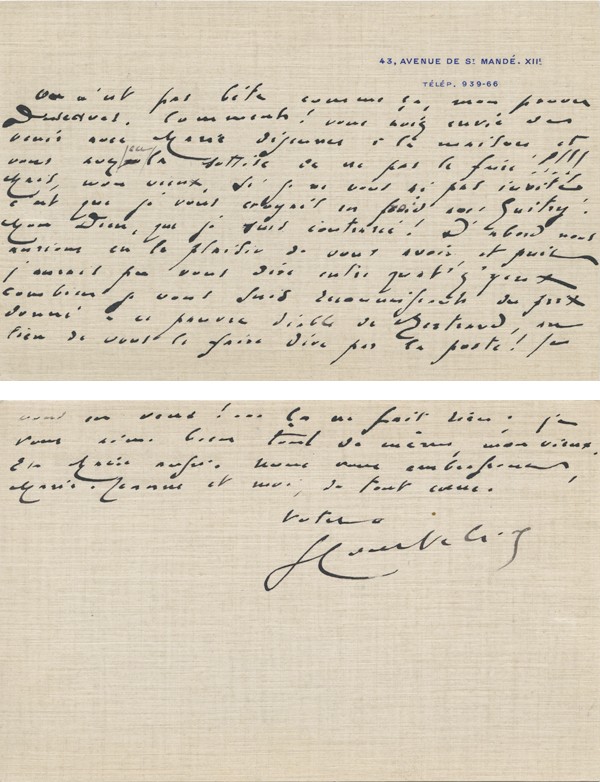 43, AVENUE DE St MANDÉ. XIIe
TÉLÉP. 939-66
On n'est pas bête comme ça, mon pauvre
Comment! vous aviez envie de
venir avec Marie déjeuner à la maison et
vous avez eu la sottise de ne pas le faire!!!!!
Mais, mon vieux, si je ne vous ai pas invités
c'est que je vous croyais en froid avec Guitry!
Mon Dieu, que je suis contrarié! D'abord nous
aurions eu le plaisir de vous avoir, et puis
j'aurais pu vous dire entre quat'z'yeux
combien je vous suis reconnaissant du prix
donné à ce pauvre diable de Bertrand, au
lieu de vous le faire dire par la poste! Je
vous en veux!... Ça ne fait rien. Je
vous aime bien tout de même, mon vieux,
et Marie aussi. Nous vous embrassons,
Marie-Jeanne et moi, de tout cœur.
Votre